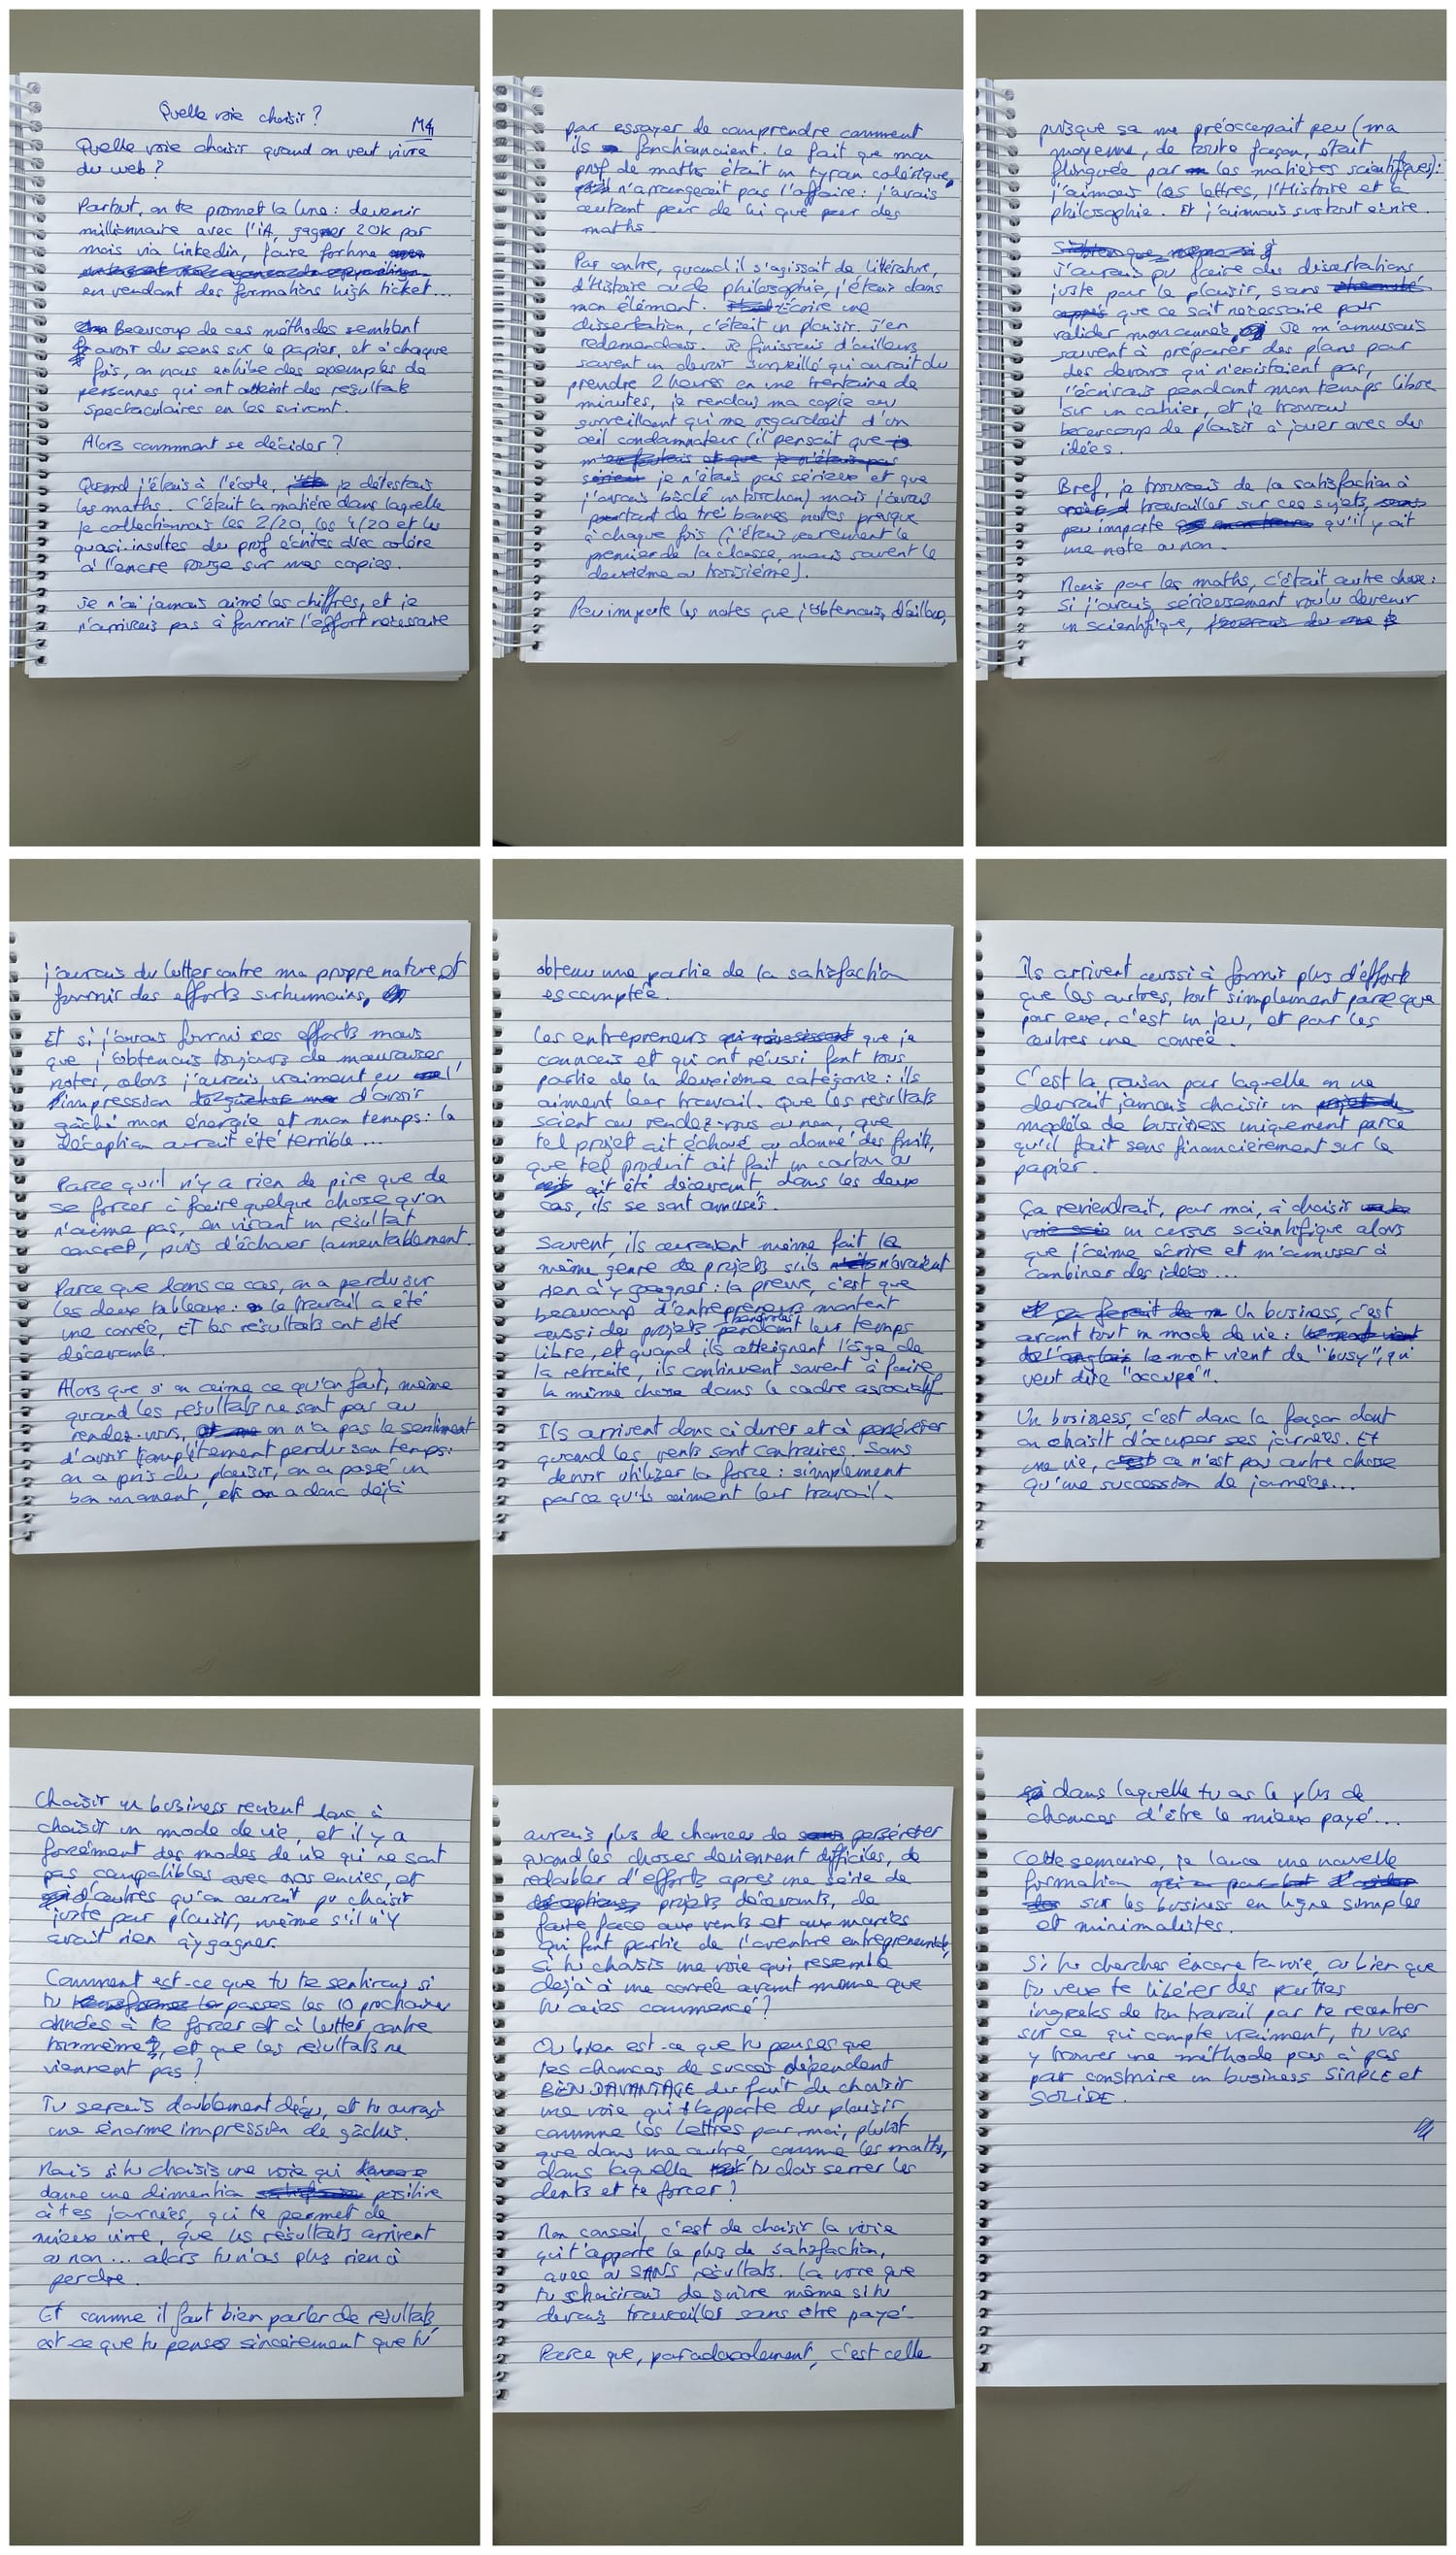 Quelle voie choisir ?
M4
Quelle voie choisir quand on veut vivre
du web ?
Partout, on te promet la lune : devenir
millionnaire avec l'IA, gagner 20k par
mois via Linkedin, faire fortune
en vendant des formations high ticket...
Beaucoup de ces méthodes semblent
avoir du sens sur le papier, et à chaque
fois, on nous exhibe des exemples de
personnes qui ont atteint des résultats
spectaculaires en les suivant.
Alors comment se décider ?
Quand j'étais à l'école, je détestais
les maths. C'était la matière dans laquelle
je collectionnais les 2/20, les 4/20 et les
quasi-insultes du prof écrites avec colère
à l'encre rouge sur mes copies.
Je n'ai jamais aimé les chiffres, et je
n'arrivais pas à fournir l'effort nécessaire
pour essayer de comprendre comment
ils fonctionnaient. Le fait que mon
prof de maths était un tyran colérique
n'arrangeait pas l'affaire : j'avais
autant peur de lui que peur des
maths.
Par contre, quand il s'agissait de littérature,
d'Histoire ou de philosophie, j'étais dans
mon élément. Écrire une
dissertation, c'était un plaisir. J'en
redemandais. Je finissais d'ailleurs
souvent un devoir surveillé qui aurait du
prendre 2 heures en une trentaine de
minutes, je rendais ma copie au
surveillant qui me regardait d'un
oeil condamnateur (il pensait que
je n'étais pas sérieux et que
j'avais bâclé un torchon) mais j'avais
pourtant de très bonnes notes presque
à chaque fois (j'étais rarement le
premier de la classe, mais souvent le
deuxième ou troisième).
Peu importe les notes que j'obtenais, d'ailleurs,
puisque ça me préoccupait peu (ma
moyenne, de toute façon, était
flinguée par les matières scientifiques) :
j'aimais les lettres, l'Histoire et la
philosophie. Et j'aimais surtout écrire.
J'aurais pu faire des dissertations
juste pour le plaisir, sans
que ce soit nécessaire pour
valider mon année. Je m'amusais
souvent à préparer des plans pour
des devoirs qui n'existaient pas,
j'écrivais pendant mon temps libre
sur un cahier, et je trouvais
beaucoup de plaisir à jouer avec des
idées.
Bref, je trouvais de la satisfaction à
travailler sur ces sujets,
peu importe qu'il y ait
une note ou non.
Mais pour les maths, c'était autre chose :
si j'avais sérieusement voulu devenir
un scientifique,
j'aurais du lutter contre ma propre nature et
fournir des efforts surhumains.
Et si j'avais fourni ces efforts mais
que j'obtenais toujours de mauvaises
notes, alors j'aurais vraiment eu l'
impression d'avoir
gâché mon énergie et mon temps : la
déception aurait été terrible...
Parce qu'il n'y a rien de pire que de
se forcer à faire quelque chose qu'on
n'aime pas, en visant un résultat
concret, puis d'échouer lamentablement.
Parce que dans ce cas, on a perdu sur
les deux tableaux : le travail a été
une corvée, ET les résultats ont été
décevants.
Alors que si on aime ce qu'on fait, même
quand les résultats ne sont pas au
rendez-vous, on n'a pas le sentiment
d'avoir complètement perdu son temps :
on a pris du plaisir, on a passé un
bon moment, et on a donc déjà
obtenu une partie de la satisfaction
escomptée.
Les entrepreneurs que je
connais et qui ont réussi font tous
partie de la deuxième catégorie : ils
aiment leur travail. Que les résultats
soient au rendez-vous ou non, que
tel projet ait échoué ou donné des fruits,
que tel produit ait fait un carton ou
ait été décevant, dans les deux
cas, ils se sont amusés.
Souvent, ils auraient même fait le
même genre de projets s'ils n'avaient
rien à y gagner : la preuve, c'est que
beaucoup d'entrepreneurs montent
aussi des projets bénévoles pendant leur temps
libre, et quand ils atteignent l'âge de
la retraite, ils continuent souvent à faire
la même chose dans le cadre associatif.
Ils arrivent donc à durer et à persévérer
quand les vents sont contraires. Sans
devoir utiliser la force : simplement
parce qu'ils aiment leur travail.
Ils arrivent aussi à fournir plus d'efforts
que les autres, tout simplement parce que
pour eux, c'est un jeu, et pour les
autres une corvée.
C'est la raison pour laquelle on ne
devrait jamais choisir un
modèle de business uniquement parce
qu'il fait sens financièrement sur le
papier.
Ça reviendrait, pour moi, à choisir
un cursus scientifique alors
que j'aime écrire et m'amuser à
combiner des idées...
Un business, c'est
avant tout un mode de vie :
le mot vient de "busy", qui
veut dire "occupé".
Un business, c'est donc la façon dont
on choisit d'occuper ses journées. Et
une vie, ce n'est pas autre chose
qu'une succession de journées...
Choisir un business revient donc à
choisir un mode de vie, et il y a
forcément des modes de vie qui ne sont
pas compatibles avec nos envies, et
d'autres qu'on aurait pu choisir
juste par plaisir, même s'il n'y
avait rien à y gagner.
Comment est-ce que tu te sentirais si
tu passes les 10 prochaines
années à te forcer et à lutter contre
toi-même, et que les résultats ne
viennent pas ?
Tu serais doublement déçu, et tu aurais
une énorme impression de gâchis.
Mais si tu choisis une voie qui
donne une dimention positive
à tes journées, qui te permet de
mieux vivre, que les résultats arrivent
ou non... alors tu n'as plus rien à
perdre.
Et comme il faut bien parler de résultats,
est-ce que tu penses sincèrement que tu
aurais plus de chances de persévérer
quand les choses deviennent difficiles, de
redoubler d'efforts après une série de
projets décevants, de
faire face aux vents et aux marées
qui font partie de l'aventure entrepreneuriale,
si tu choisis une voie qui ressemble
déjà à une corvée avant même que
tu aies commencé ?
Ou bien est-ce que tu penses que
tes chances de succès dépendent
BIEN DAVANTAGE du fait de choisir
une voie qui t'apporte du plaisir,
comme les Lettres pour moi, plutôt
que dans une autre, comme les maths,
dans laquelle tu dois serrer les
dents et te forcer ?
Mon conseil, c'est de choisir la voie
qui t'apporte le plus de satisfaction,
avec ou SANS résultats. La voie que
tu choisirais de suivre même si tu
devais travailler sans être payé.
Parce que, paradoxalement, c'est celle
dans laquelle tu as le plus de
chances d'être le mieux payé...
Cette semaine, je lance une nouvelle
formation
sur les business en ligne simples
et minimalistes.
Si tu cherches encore ta voie, ou bien que
tu veux te libérer des parties
ingrates de ton travail pour te recentrer
sur ce qui compte vraiment, tu vas
y trouver une méthode pas à pas
pour construire un business SIMPLE et
SOLIDE.